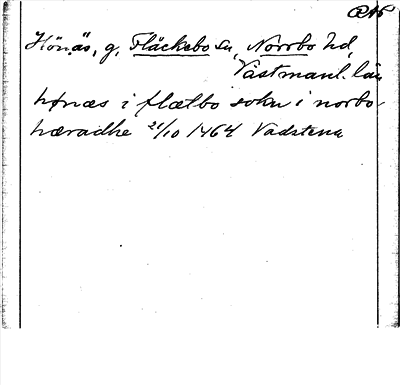 RAP
Hönäs, g, Fläckebo sn, Norrbo hd,
Västmanl. län
hønæs i flælbo sokn i norbo
hæradhe 21/10 1464 Vadstena